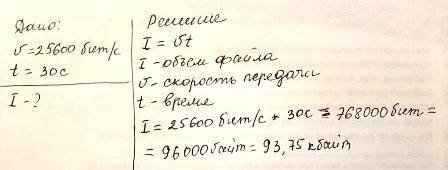 Дано:
υ=25600 бит/с
t = 30с
I - ?
Решение
I = υt
I - объем файла
υ - скорость передачи
t - время
I = 25600 бит/с * 30с = 768000 бит =
= 96000 байт = 93,75 кбайт